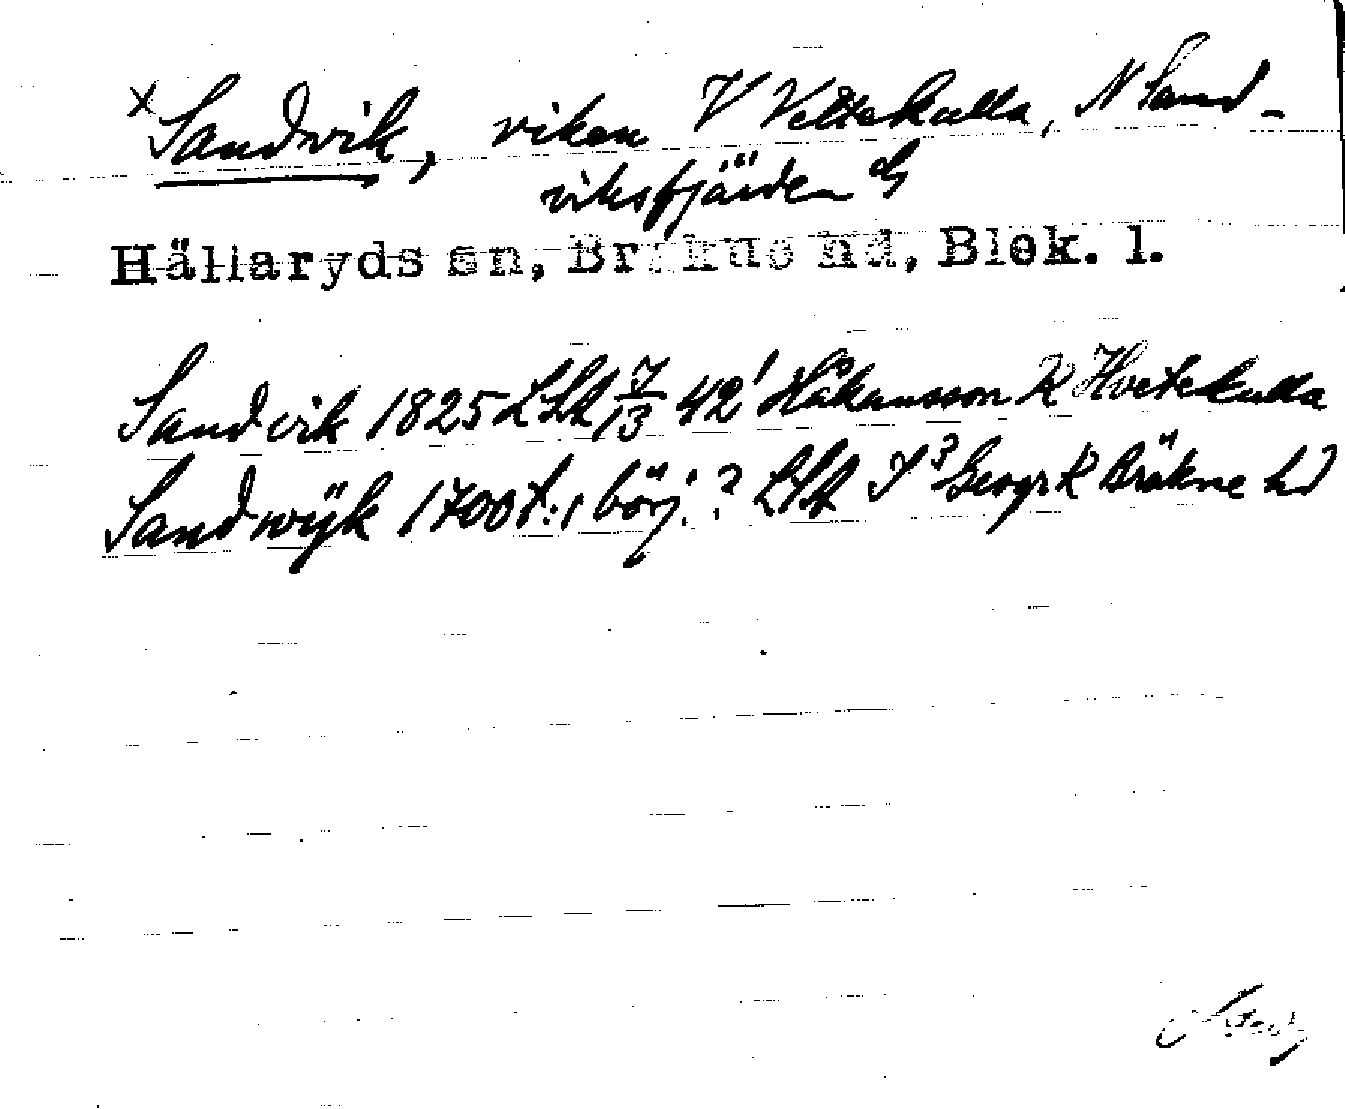 x Sandvik, viken V Vettekulla, N Sand-
viksfjärden
Hällaryds sn, Bräkne hd, Blek. l.
Sandvik 1825 LSA 7/13 42' Håkansson K Hvetekulla
Sandwijk 1700 t., börj.? LSA S³ Geogr K Bräkne hd